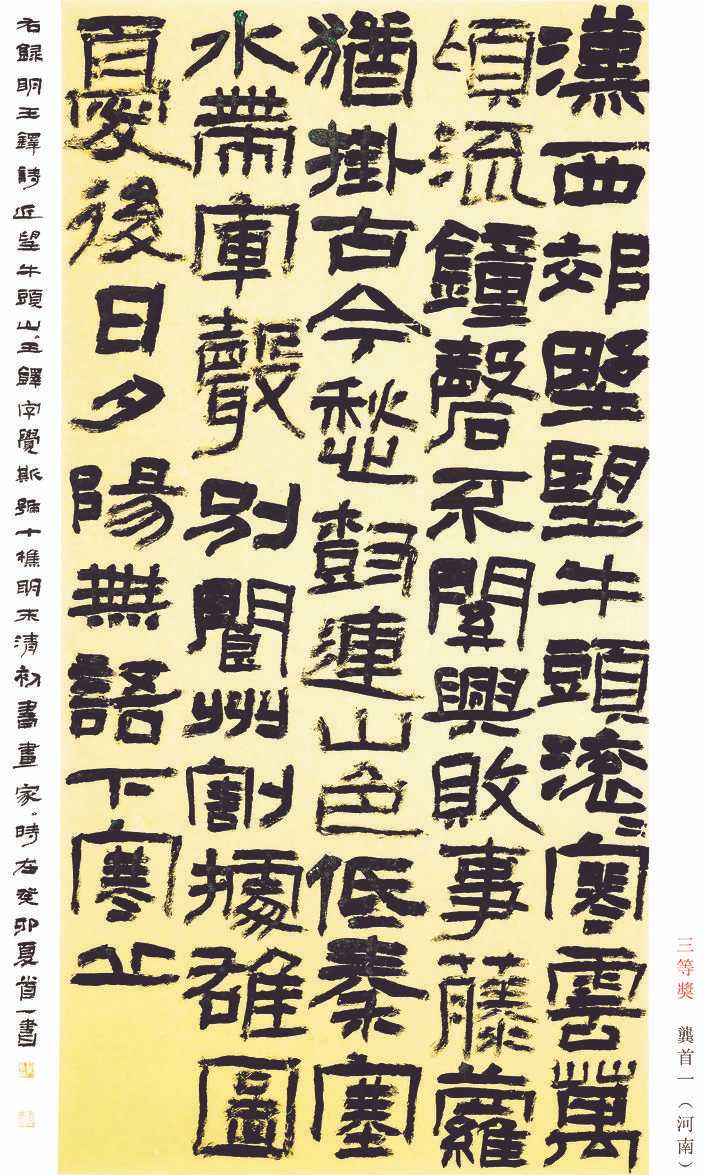 漢西郊墅望牛頭滾〻寒雲萬
頃流鐘磬不聞興敗事藤蘿
猶掛古今愁樹連山色低秦塞
水帶軍聲別閬州割據雄圖
憂後日夕陽無語下寒丘
右録明王鐸詩近望牛頭山。王鐸字覺斯號十樵明末清初書畫家。時在癸卯夏首一書
三等獎 龔首一（河南）